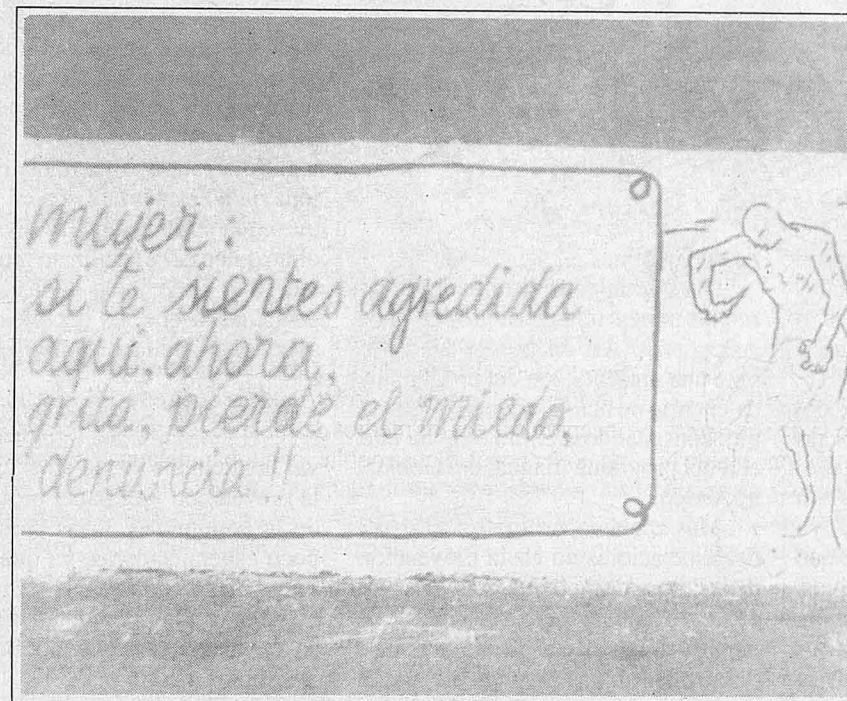 mujer:
si te sientes agredida
aquí, ahora,
grita, pierde el miedo,
denuncia!!